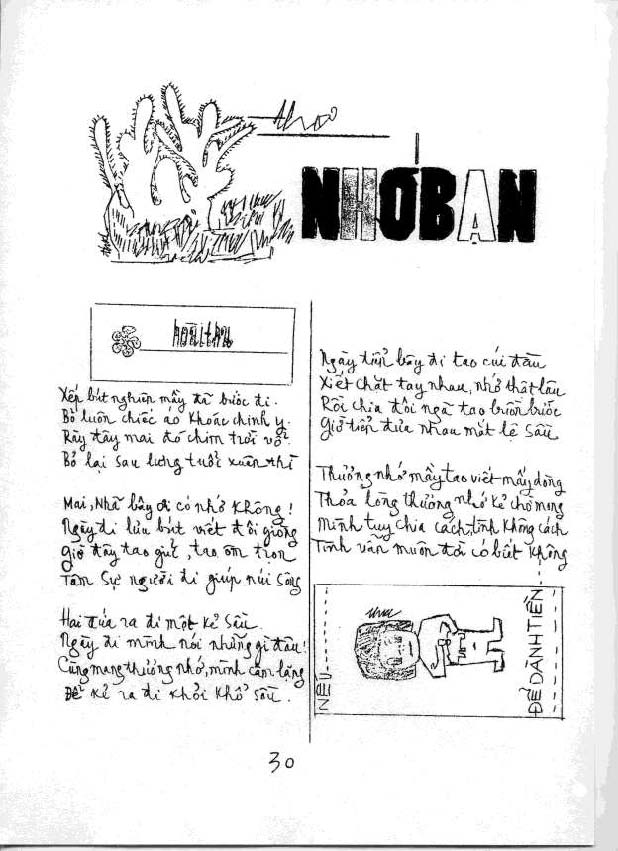 thơ
NHỚ BẠN
hoài thu
Xếp bút nghiên mầy đã bước đi.
Bỏ luôn chiếc áo khoác chinh y.
Rày đây mai đó chim trời vỗ
Bỏ lại sau lưng tuổi xuân thì
Mai, Nhã bây ơi có nhớ không!
Ngày đi lưu bút viết đôi giòng
Giờ đây tao giữ, tao ôm trọn
Tâm sự người đi giúp núi sông
Hai đứa ra đi một kẻ sầu.
Ngày đi mình nói những gì đâu!
Cũng mang thương nhớ, mình câm lặng
Để kẻ ra đi khỏi khổ sầu.
Ngày tiễn bây đi tao cúi đầu
Xiết chặt tay nhau, nhớ thật lâu
Rồi chia đôi ngã tao buồn bước
Giờ tiễn đưa nhau mắt lệ sầu
Thương nhớ mầy tao viết mấy dòng
Thỏa lòng thương nhớ kẻ chờ mong
Mình tuy chia cách, tình không cách
Tình vẫn muôn đời có biết không
NẾU
ĐỂ DÀNH TIỀN
30